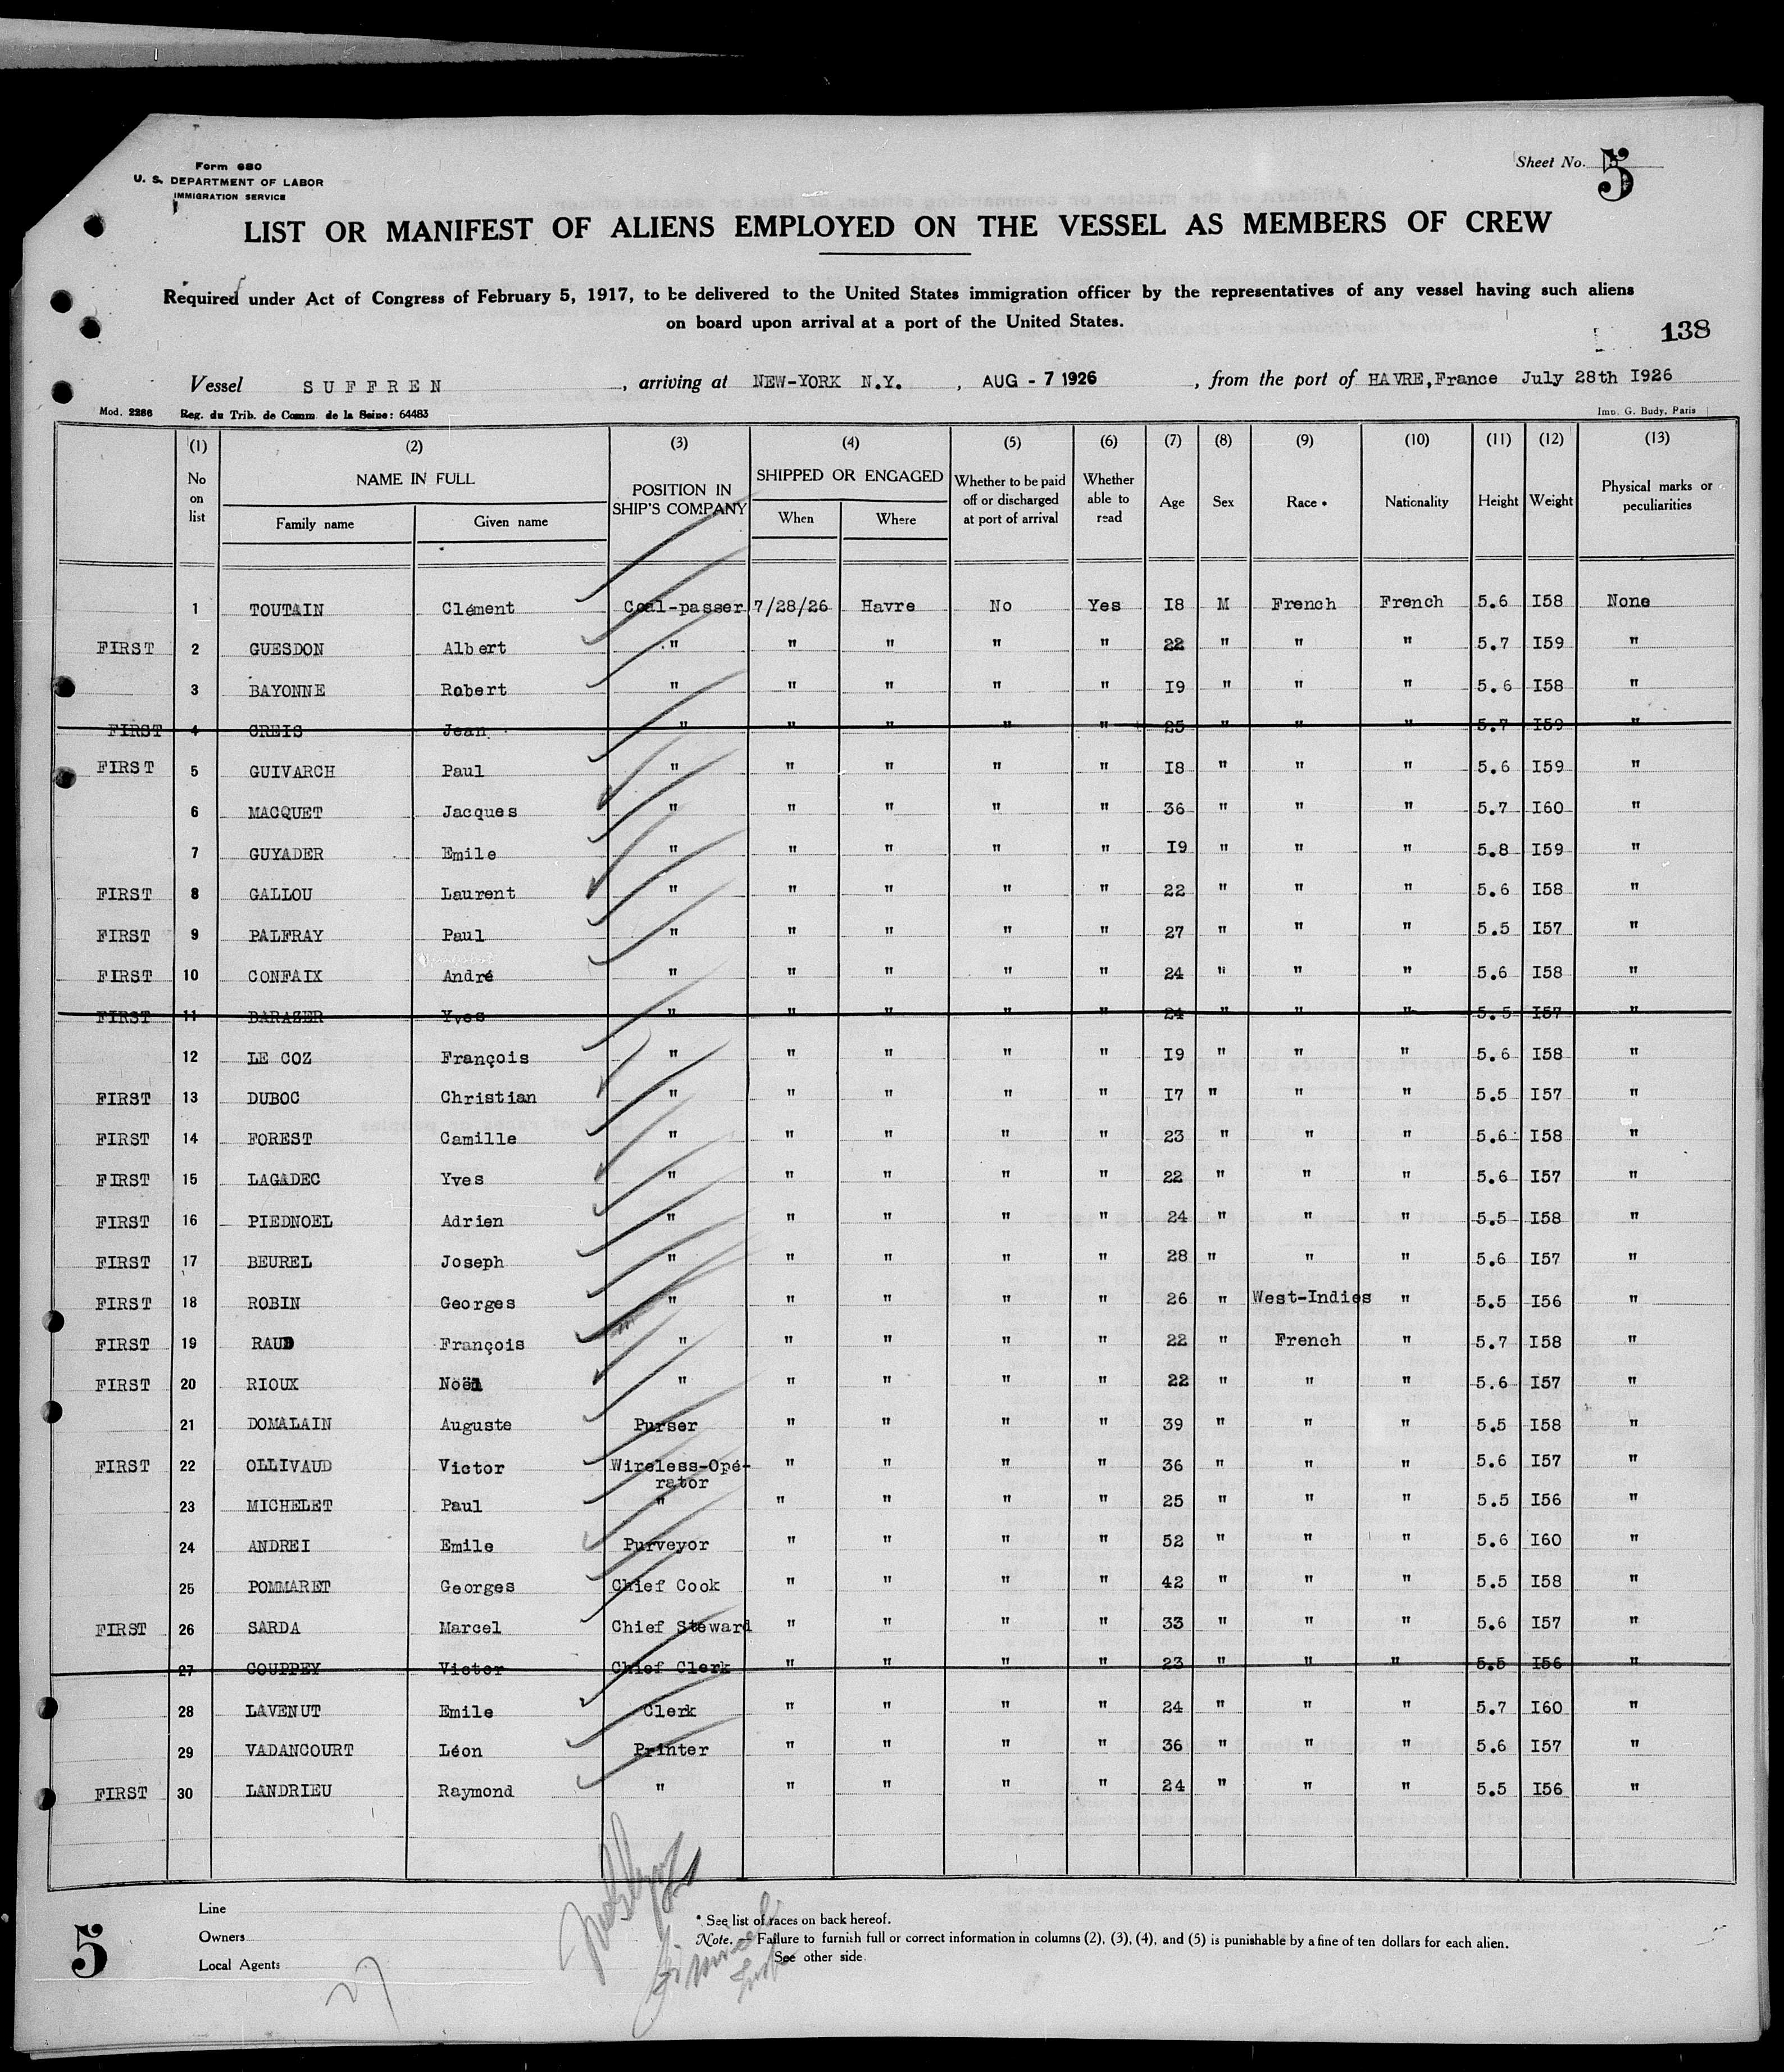 Form 680
U. S. DEPARTMENT OF LABOR
IMMIGRATION SERVICE
Sheet No. 5
LIST OR MANIFEST OF ALIENS EMPLOYED ON THE VESSEL AS MEMBERS OF CREW
Required under Act of Congress of February 5, 1917, to be delivered to the United States immigration officer by the representatives of any vessel having such aliens
on board upon arrival at a port of the United States.
138
Vessel SUFFREN, arriving at NEW-YORK N.Y., AUG - 7 1926, from the port of HAVRE, France July 28th I926
Mod. 2286 Reg. du Trib. de Comm. de la Seine: 64483 Imp. G. Budy, Paris
(1) (2) (3) (4) (5) (6) (7) (8) (9) (10) (11) (12) (13)
No on list NAME IN FULL Family name Given name POSITION IN SHIP'S COMPANY SHIPPED OR ENGAGED When Where Whether to be paid off or discharged at port of arrival Whether able to read Age Sex Race * Nationality Height Weight Physical marks or peculiarities
1 TOUTAIN Clément Coal-passer 7/28/26 Havre No Yes I8 M French French 5.6 I58 None
FIRST 2 GUESDON Albert " " " " " 22 " " " 5.7 I59 "
3 BAYONNE Robert " " " " " I9 " " " 5.6 I58 "
FIRST 4 CREIS Jean " " " " " 25 " " " 5.7 I59 "
FIRST 5 GUIVARCH Paul " " " " " I8 " " " 5.6 I59 "
6 MACQUET Jacques " " " " " 36 " " " 5.7 I60 "
7 GUYADER Emile " " " " " I9 " " " 5.8 I59 "
FIRST 8 GALLOU Laurent " " " " " 22 " " " 5.6 I58 "
FIRST 9 PALFRAY Paul " " " " " 27 " " " 5.5 I57 "
FIRST 10 CONFAIX André " " " " " 24 " " " 5.6 I58 "
FIRST 11 BARAZER Yves " " " " " 24 " " " 5.5 I57 "
12 LE COZ François " " " " " I9 " " " 5.6 I58 "
FIRST 13 DUBOC Christian " " " " " I7 " " " 5.5 I57 "
FIRST 14 FOREST Camille " " " " " 23 " " " 5.6 I58 "
FIRST 15 LAGADEC Yves " " " " " 22 " " " 5.6 I57 "
FIRST 16 PIEDNOEL Adrien " " " " " 24 " " " 5.5 I58 "
FIRST 17 BEUREL Joseph " " " " " 28 " " " 5.6 I57 "
FIRST 18 ROBIN Georges " " " " " 26 " West-Indies " 5.5 I56 "
FIRST 19 RAUD François " " " " " 22 " French " 5.7 I58 "
FIRST 20 RIOUX Noël " " " " " 22 " " " 5.6 I57 "
21 DOMALAIN Auguste Purser " " " " 39 " " " 5.5 I58 "
FIRST 22 OLLIVAUD Victor Wireless-Opé- " " " " 36 " " " 5.6 I57 "
rator
23 MICHELET Paul " " " " " 25 " " " 5.5 I56 "
24 ANDREI Emile Purveyor " " " " 52 " " " 5.6 I60 "
25 POMMARET Georges Chief Cook " " " " 42 " " " 5.5 I58 "
FIRST 26 SARDA Marcel Chief Steward " " " " 33 " " " 5.6 I57 "
27 COUPPEY Victor Chief Clerk " " " " 23 " " " 5.5 I56 "
28 LAVENUT Emile Clerk " " " " 24 " " " 5.7 I60 "
29 VADANCOURT Léon Printer " " " " 36 " " " 5.6 I57 "
FIRST 30 LANDRIEU Raymond " " " " " 24 " " " 5.5 I56 "
Line
Owners
Local Agents
5
27
* See list of races on back hereof.
Note. — Failure to furnish full or correct information in columns (2), (3), (4), and (5) is punishable by a fine of ten dollars for each alien.
See other side.